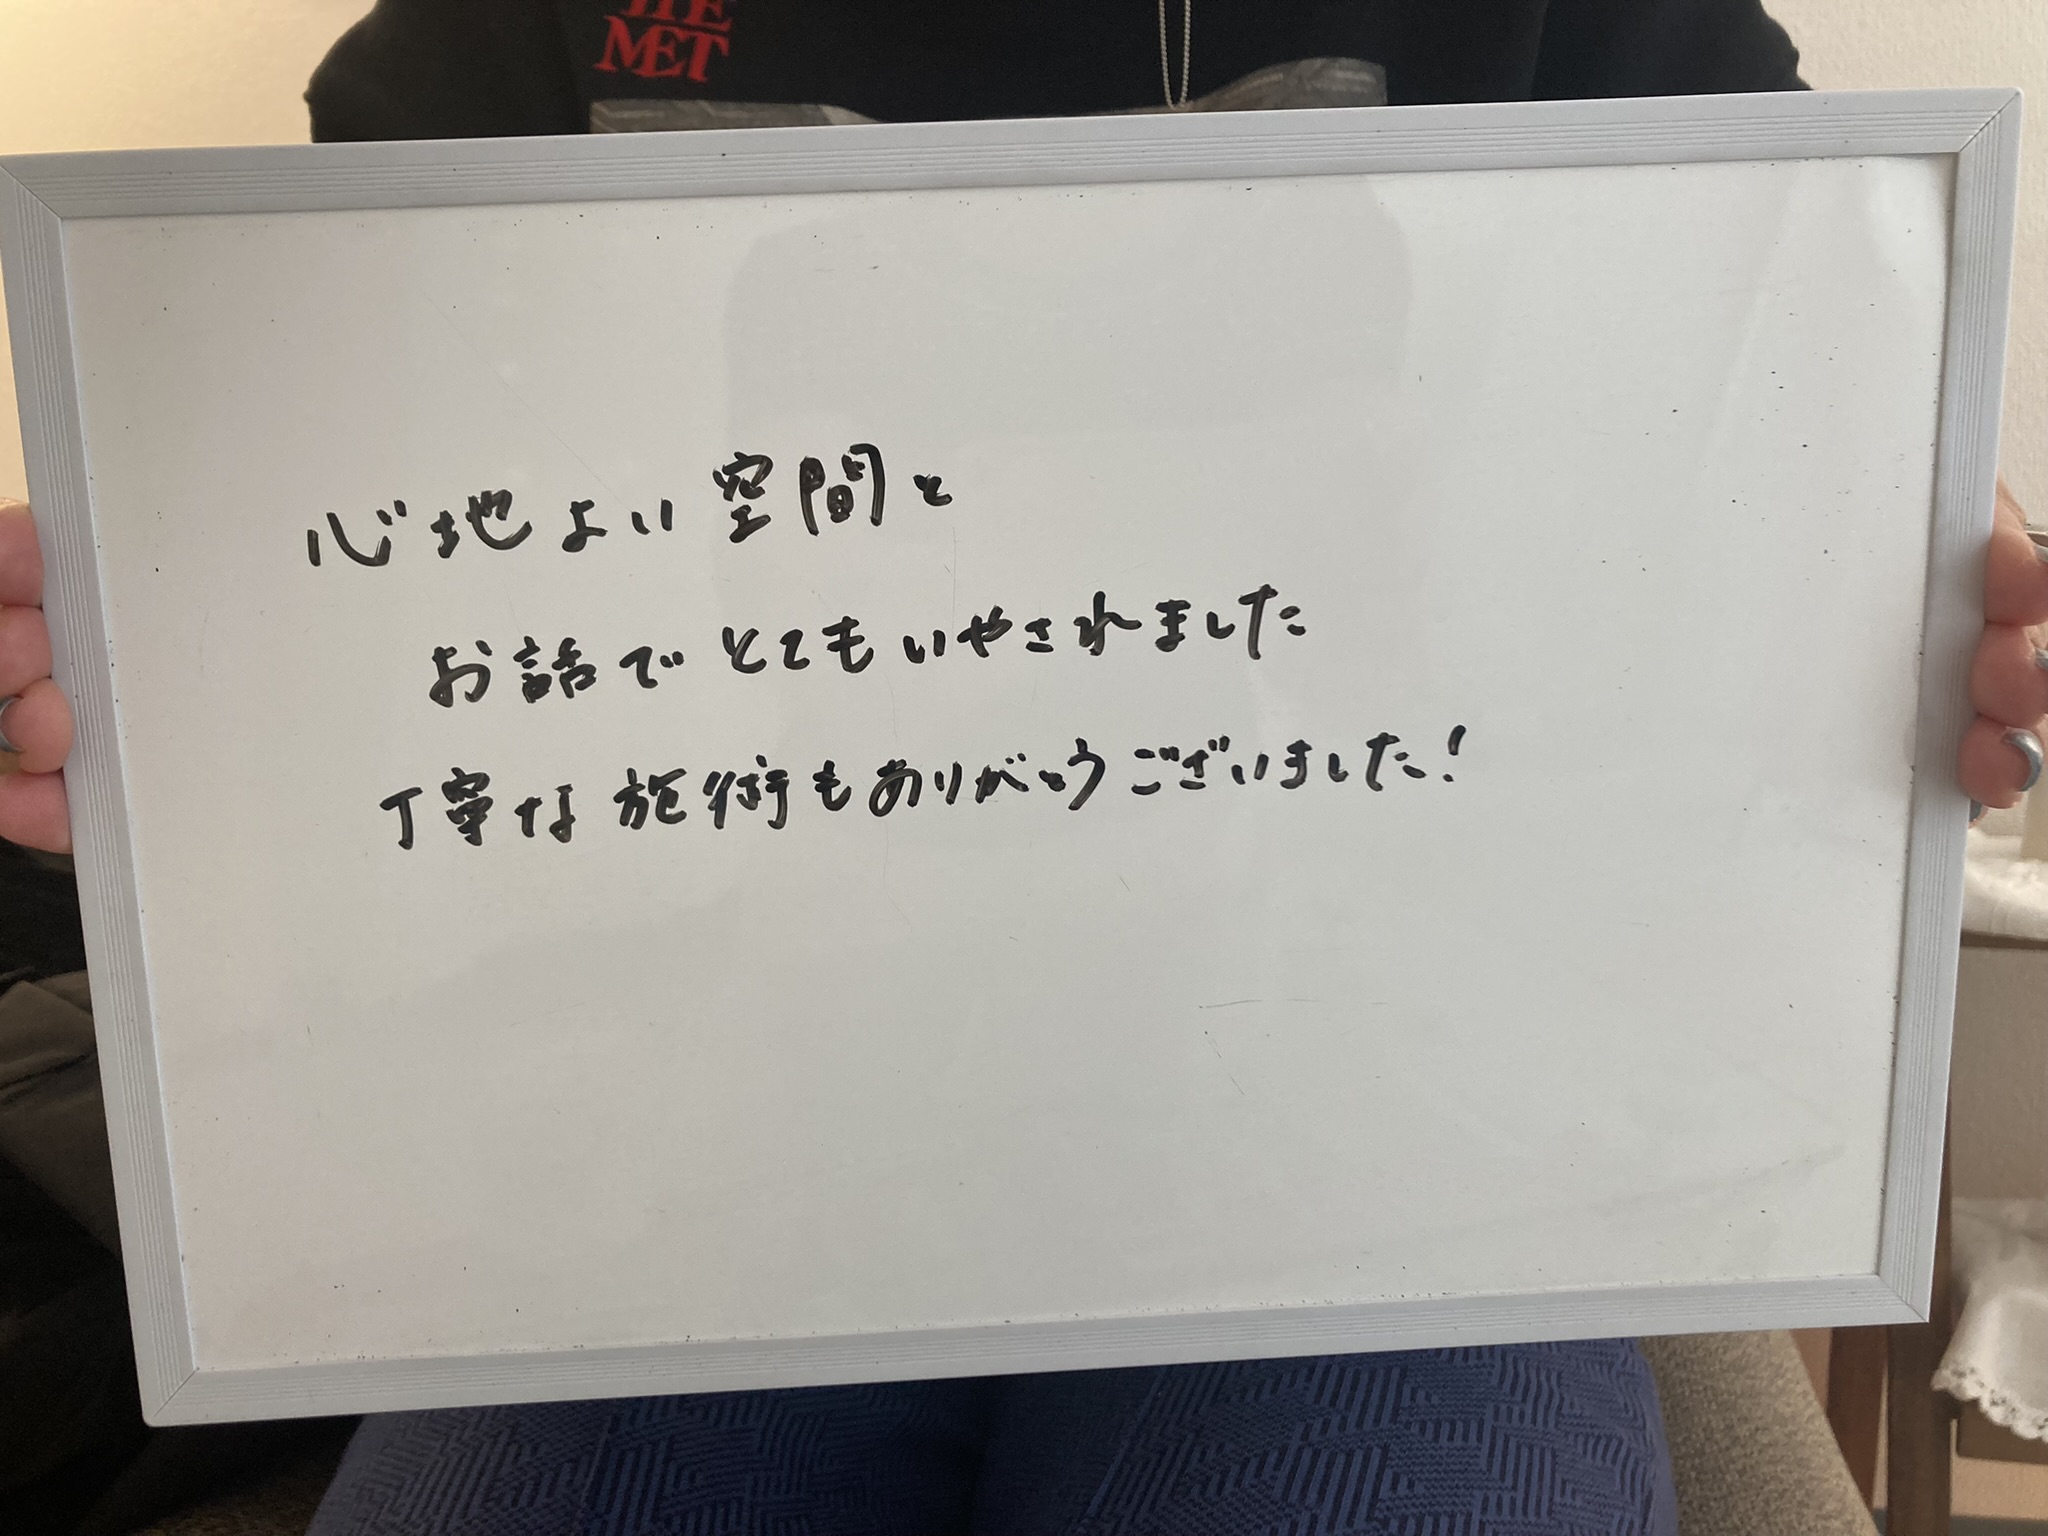 THE
MET
心地よい空間と
お話でとてもいやされました
丁寧な施術もありがとうございました!